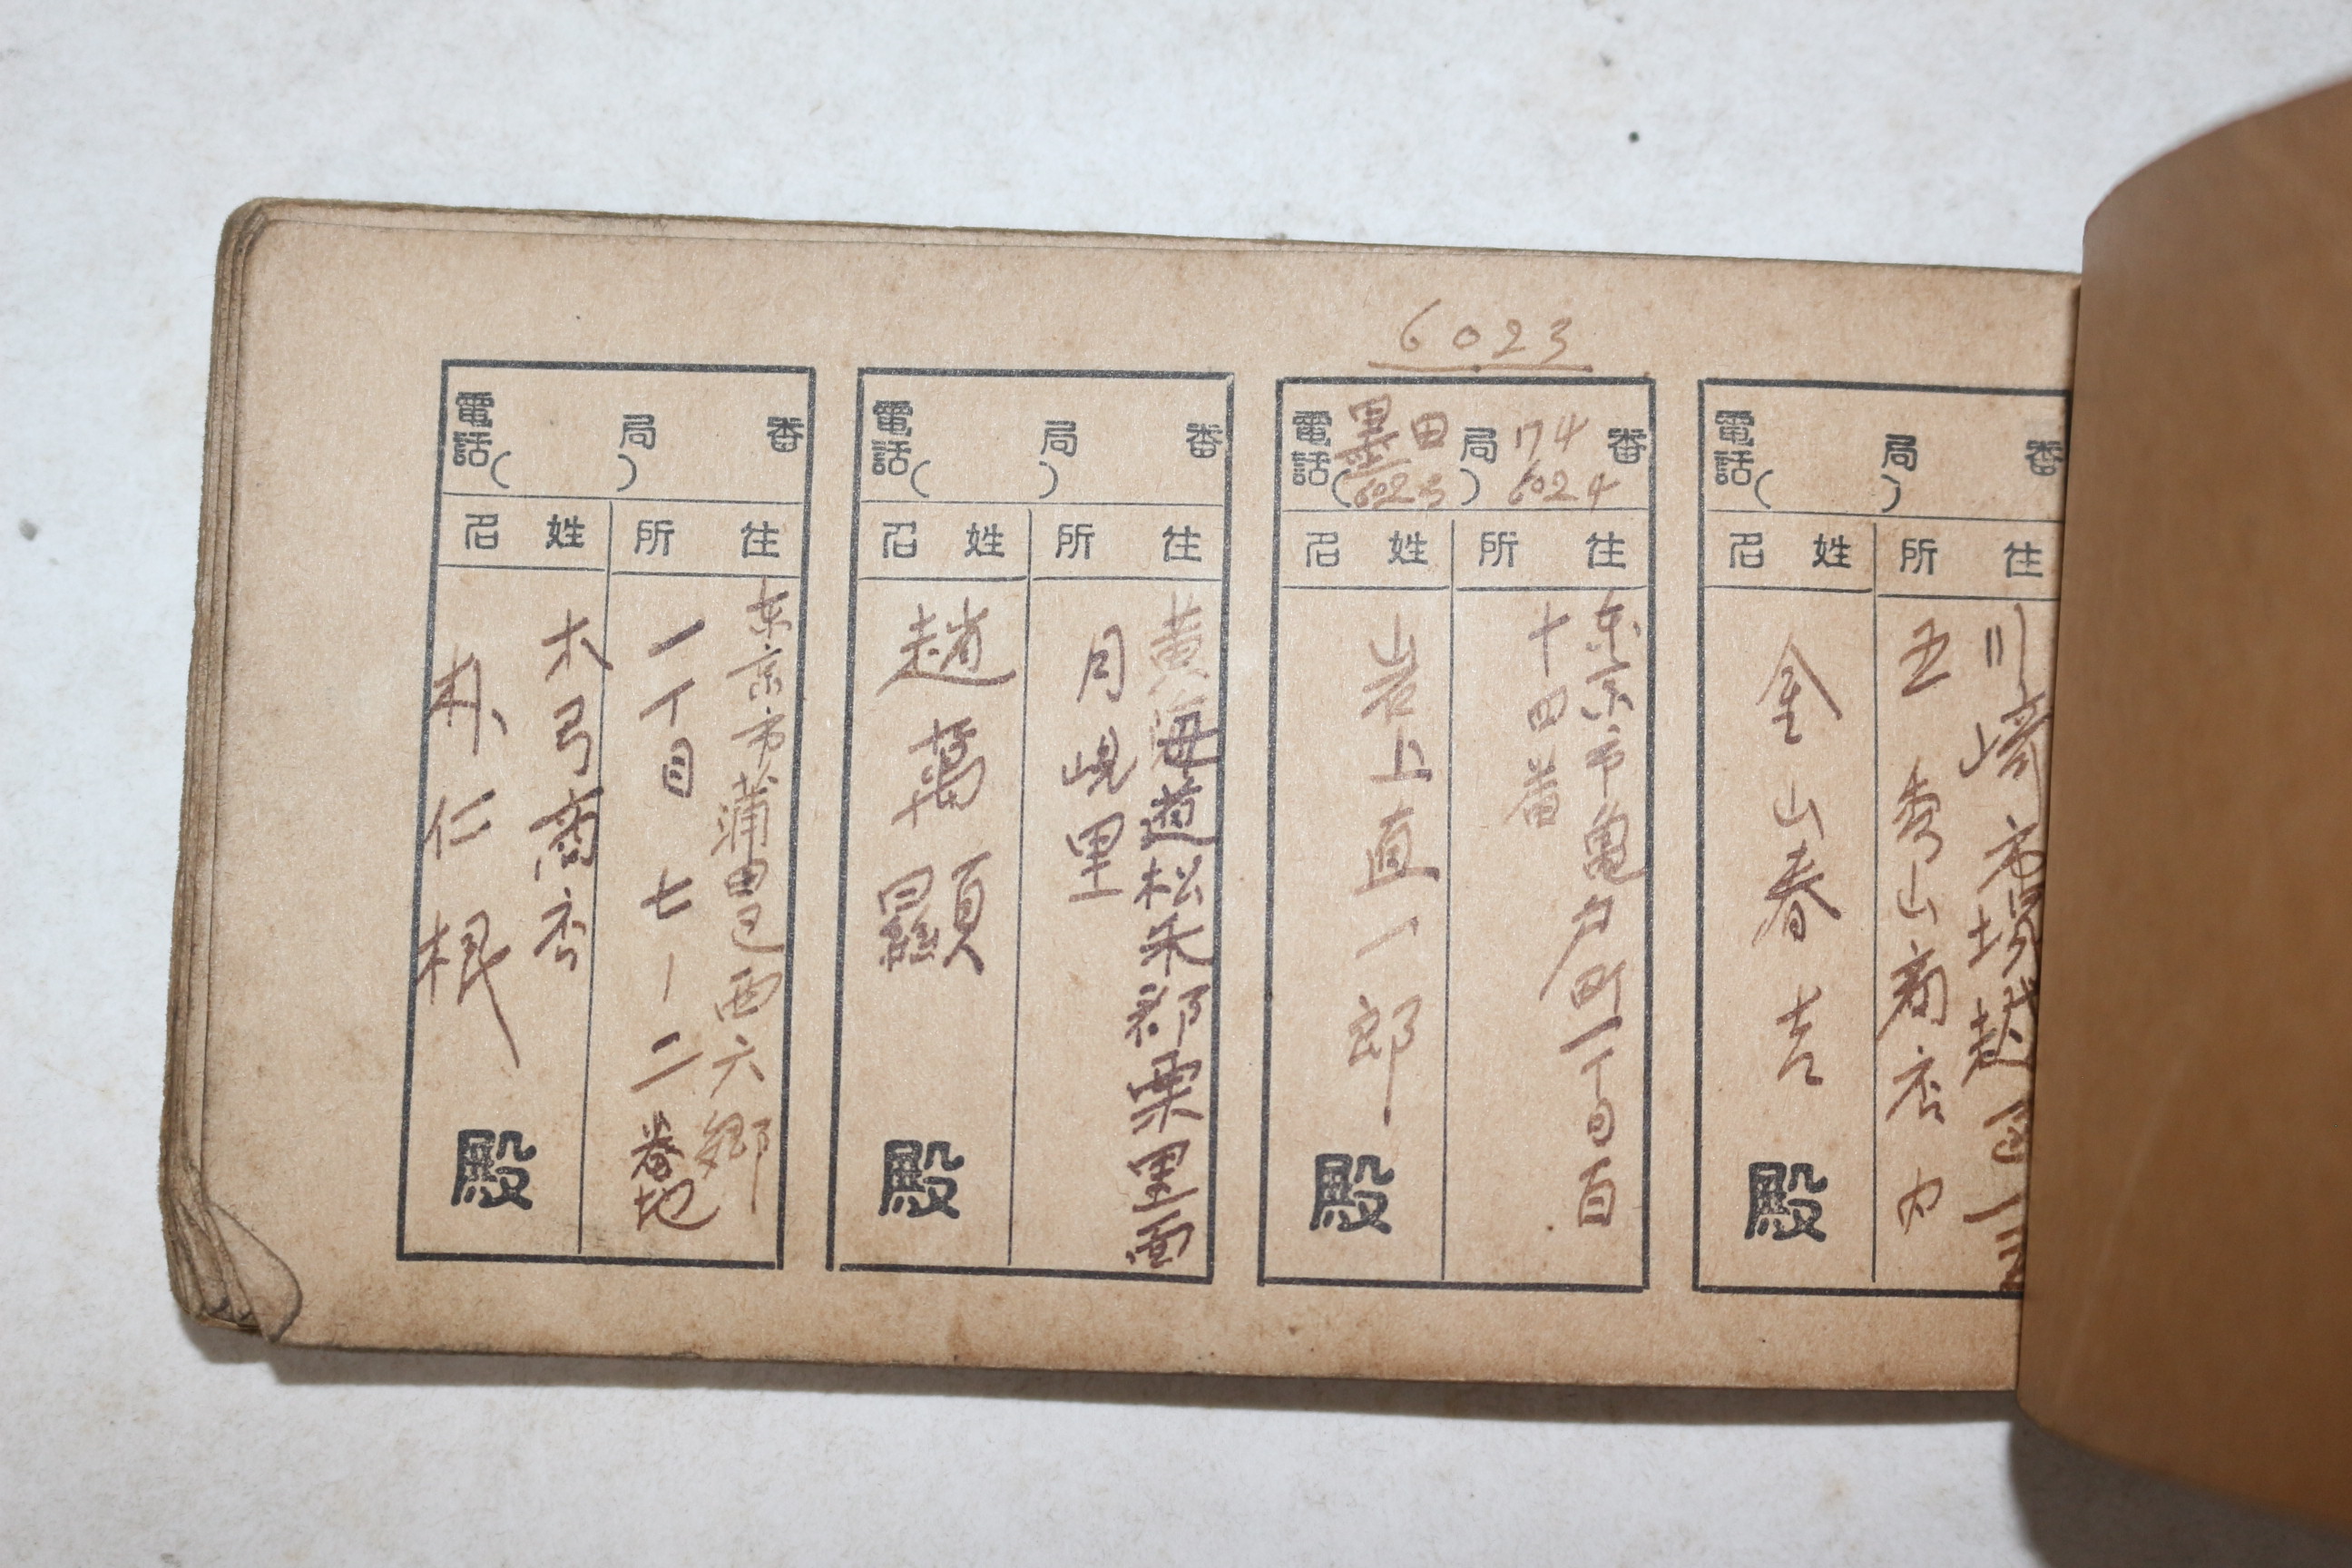 電話( )局 番
住所
姓名
川崎市
五 秀山商店内
金山春吉
殿
6023
電話 墨田局 174番
(6023) 6024
住所
姓名
东京市亀戸町一丁目百
十四番
岩上直一郎
殿
電話( )局 番
住所
姓名
黄海道松禾郡栗里面
月峴里
趙萬顯
殿
電話( )局 番
住所
姓名
东京市蒲田区西六郷
一丁目七ノ二番地
弓商店
仁根
殿